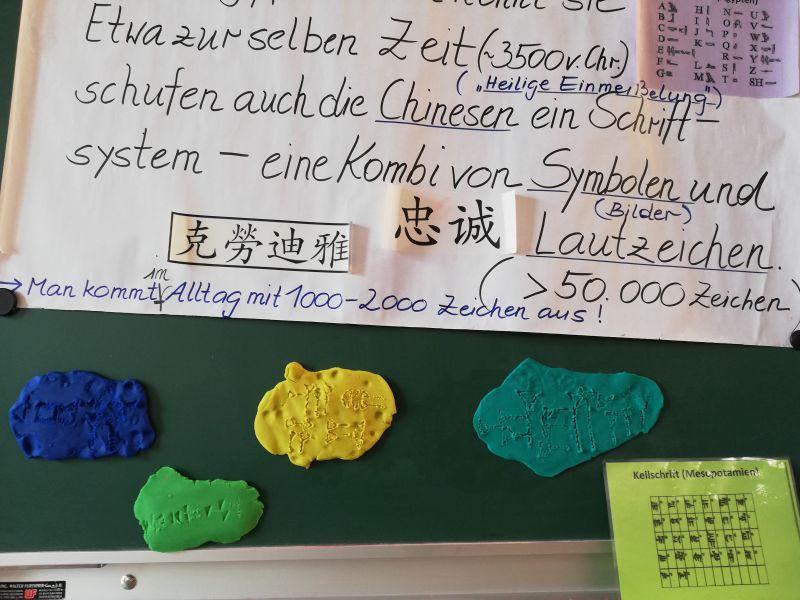 sie
Etwa zur selben Zeit (~3500 v. Chr.)
("Heilige Einmeißelung")
schufen auch die Chinesen ein Schrift-
system – eine Kombi von Symbolen und
(Bilder)
克勞迪雅
忠诚
Lautzeichen.
(>50.000 Zeichen)
→ Man kommt im Alltag mit 1000-2000 Zeichen aus!
A H N U
B I O V
C J P W
D K Q X
E R Y
F L S Z
G M T SH
Keilschrift (Mesopotamien)